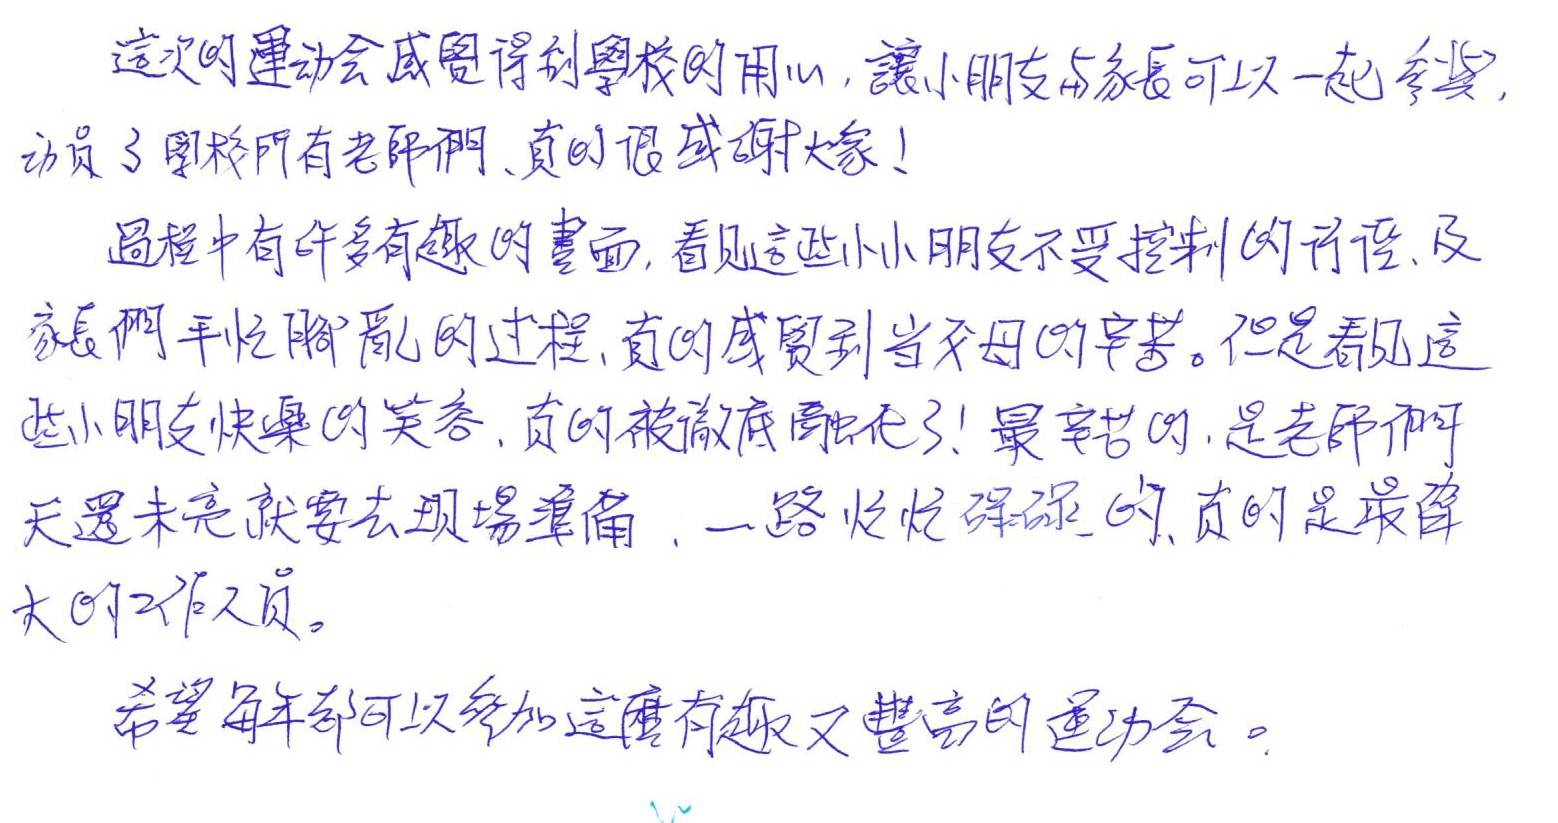 這次的運动会感覺得到學校的用心,讓小朋友与家長可以一起參與,
动員了學校所有老師們、真的很感謝大家!
過程中有許多有趣的畫面,看见這些小小朋友不受控制的行徑、及
家長們手忙腳亂的过程、真的感覺到当父母的辛苦。但是看见這
些小朋友快樂的笑容、真的被徹底融化了!最辛苦的,是老師們
天還未亮就要去現場準備、一路忙忙碌碌的、真的是最偉
大的工作人員。
希望每年都可以參加這麼有趣又豐富的運动会。